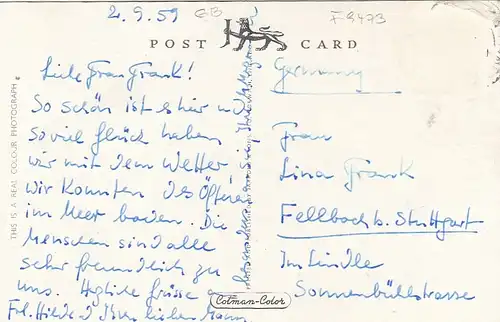 2.9.59
GB
F 9473
POST CARD
THIS IS A REAL COLOUR PHOTOGRAPH
Liebe Frau Frank!
So schön ist es hier und
soviel Glück haben
wir mit dem Wetter,
wir konnten des Öfteren
im Meer baden. Die
Menschen sind alle
sehr freundlich zu
uns. Herzliche Grüsse a
Frl. Hilde u Ihren lieben Mann
Germany
Frau
Lina Frank
Fellbach b. Stuttgart
Im Lindle
Sonnenbühlstrasse
Cotman-Color